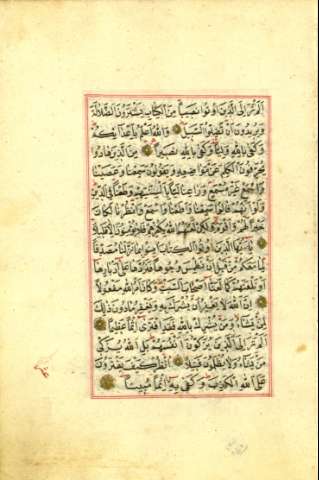 اَلَمْ تَرَ اِلَى الَّذٖينَ اُوتُوا نَصٖيباً مِنَ الْكِتَابِ يَشْتَرُونَ الضَّلَالَةَ
وَيُرٖيدُونَ اَنْ تَضِلُّوا السَّبٖيلَ وَاللّٰهُ اَعْلَمُ بِاَعْدَائِكُمْ
وَكَفٰى بِاللّٰهِ وَلِيّاً وَكَفٰى بِاللّٰهِ نَصٖيراً مِنَ الَّذٖينَ هَادُوا
يُحَرِّفُونَ الْكَلِمَ عَنْ مَوَاضِعِهٖ وَيَقُولُونَ سَمِعْنَا وَعَصَيْنَا
وَاسْمَعْ غَيْرَ مُسْمَعٍ وَرَاعِنَا لَيّاً بِاَلْسِنَتِهِمْ وَطَعْناً فِى الدّٖينِ
وَلَوْ اَنَّهُمْ قَالُوا سَمِعْنَا وَاَطَعْنَا وَاسْمَعْ وَانْظُرْنَا لَكَانَ
خَيْراً لَهُمْ وَاَقْوَمَ وَلٰكِنْ لَعَنَهُمُ اللّٰهُ بِكُفْرِهِمْ فَلَا يُؤْمِنُونَ اِلَّا قَلٖيلاً
يَا اَيُّهَا الَّذٖينَ اُوتُوا الْكِتَابَ اٰمِنُوا بِمَا نَزَّلْنَا مُصَدِّقاً
لِمَا مَعَكُمْ مِنْ قَبْلِ اَنْ نَطْمِسَ وُجُوهاً فَنَرُدَّهَا عَلٰى اَدْبَارِهَا
اَوْ نَلْعَنَهُمْ كَمَا لَعَنَّا اَصْحَابَ السَّبْتِ وَكَانَ اَمْرُ اللّٰهِ مَفْعُولاً
اِنَّ اللّٰهَ لَا يَغْفِرُ اَنْ يُشْرَكَ بِهٖ وَيَغْفِرُ مَا دُونَ ذٰلِكَ
لِمَنْ يَشَاءُ وَمَنْ يُشْرِكْ بِاللّٰهِ فَقَدِ افْتَرٰى اِثْماً عَظٖيماً
اَلَمْ تَرَ اِلَى الَّذٖينَ يُزَكُّونَ اَنْفُسَهُمْ بَلِ اللّٰهُ يُزَكّٖى
مَنْ يَشَاءُ وَلَا يُظْلَمُونَ فَتٖيلاً اُنْظُرْ كَيْفَ يَفْتَرُونَ
عَلَى اللّٰهِ الْكَذِبَ وَكَفٰى بِهٖ اِثْماً مُبٖيناً